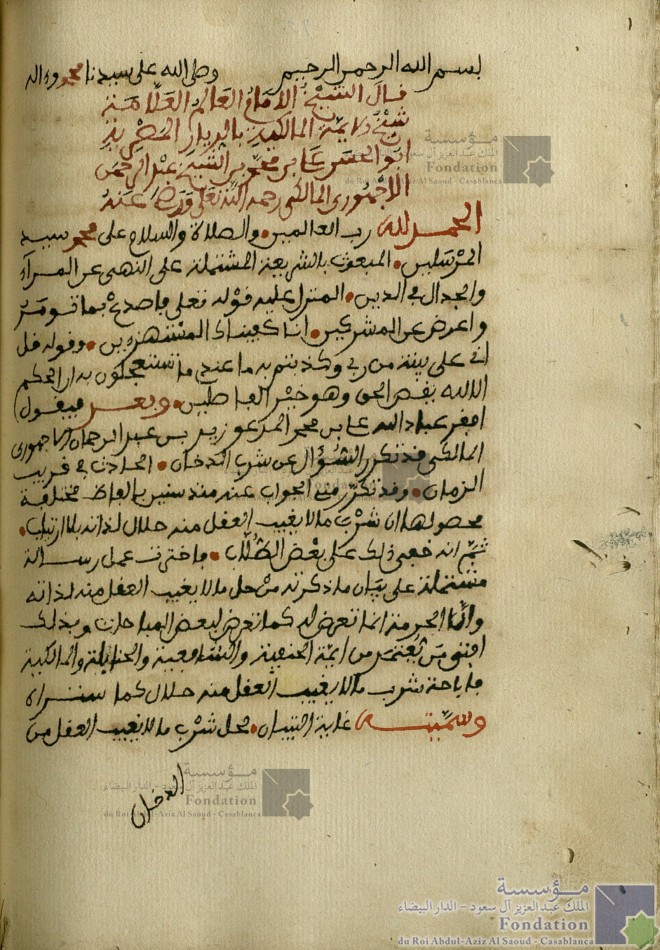 بسم الله الرحمن الرحيم وصلى الله على سيدنا محمد وءاله
قال الشيخ الامام العالم العلامة
شيخ المالكية بالديار المصرية
ابو الحسن على بن محمد بن الشيخ عبد الرحمن
الاجهورى المالكى رحمه الله تعلى ورضى عنه
الحمد لله رب العالمين والصلاة والسلام على محمد سيد
المرسلين المبعوث بالشريعة المشتملة على النهى عن المراء
والجدال فى الدين المنزل عليه قوله تعلى فاصدع بما تومر
واعرض عن المشركين انا كفيناك المستهزءين وقوله قل
انى على بينة من ربى وكذبتم به ما عندى ما تستعجلون به ان الحكم
الا لله يقص الحق وهو خير الفاصلين وبعد فيقول
افقر عباد الله على بن محمد المدعو زين بن عبد الرحمان الاجهورى
المالكى قد تكرر السؤال عن شرب الدخان الحادث فى قريب
الزمان وقد تكرر منى الجواب عنه منذ سنين بالفاظ مختلفة
محصولها ان شرب ما لا يغيب العقل منه حلال لذاته بلا ارتياب
ثم انه خفى ذلك على بعض الطلاب فاخترت عمل رسالة
مشتملة على بيان ما ذكرته من حل ما لا يغيب العقل منه لذاته
وانما الحرمة انما تعرض له كما تعرض لبعض المباحات وبذلك
افتى من يعتمد من ايمة الحنفية والشافعية والحنابلة والمالكية
فاباحة شرب ما لا يغيب العقل منه حلال كما ستراه
وسميته غاية التبيان لحل شرب ما لا يغيب العقل من
الدخان
مؤسسة
الملك عبد العزيز آل سعود - الدار البيضاء
Fondation
du Roi Abdul-Aziz Al Saoud - Casablanca